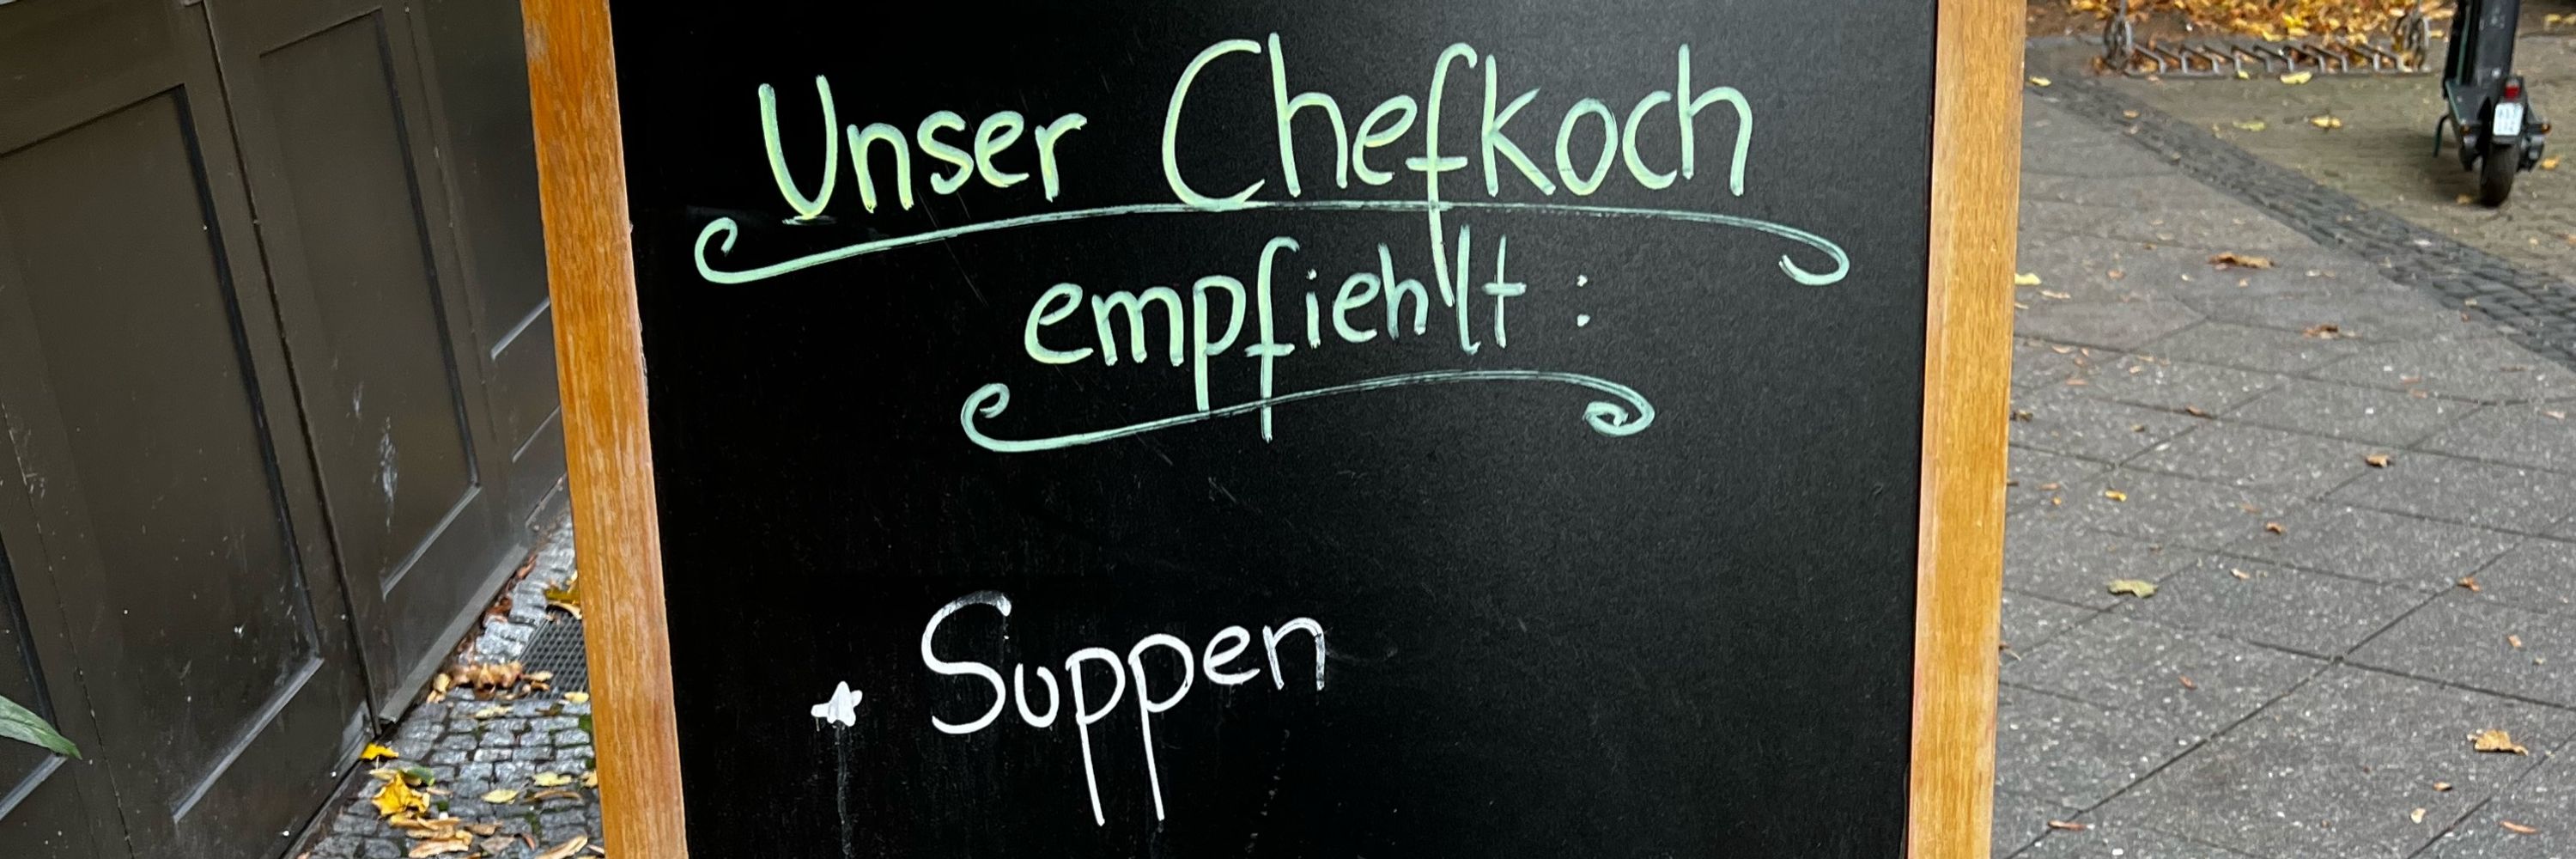 Unser Chefkoch
empfiehlt :
* Suppen